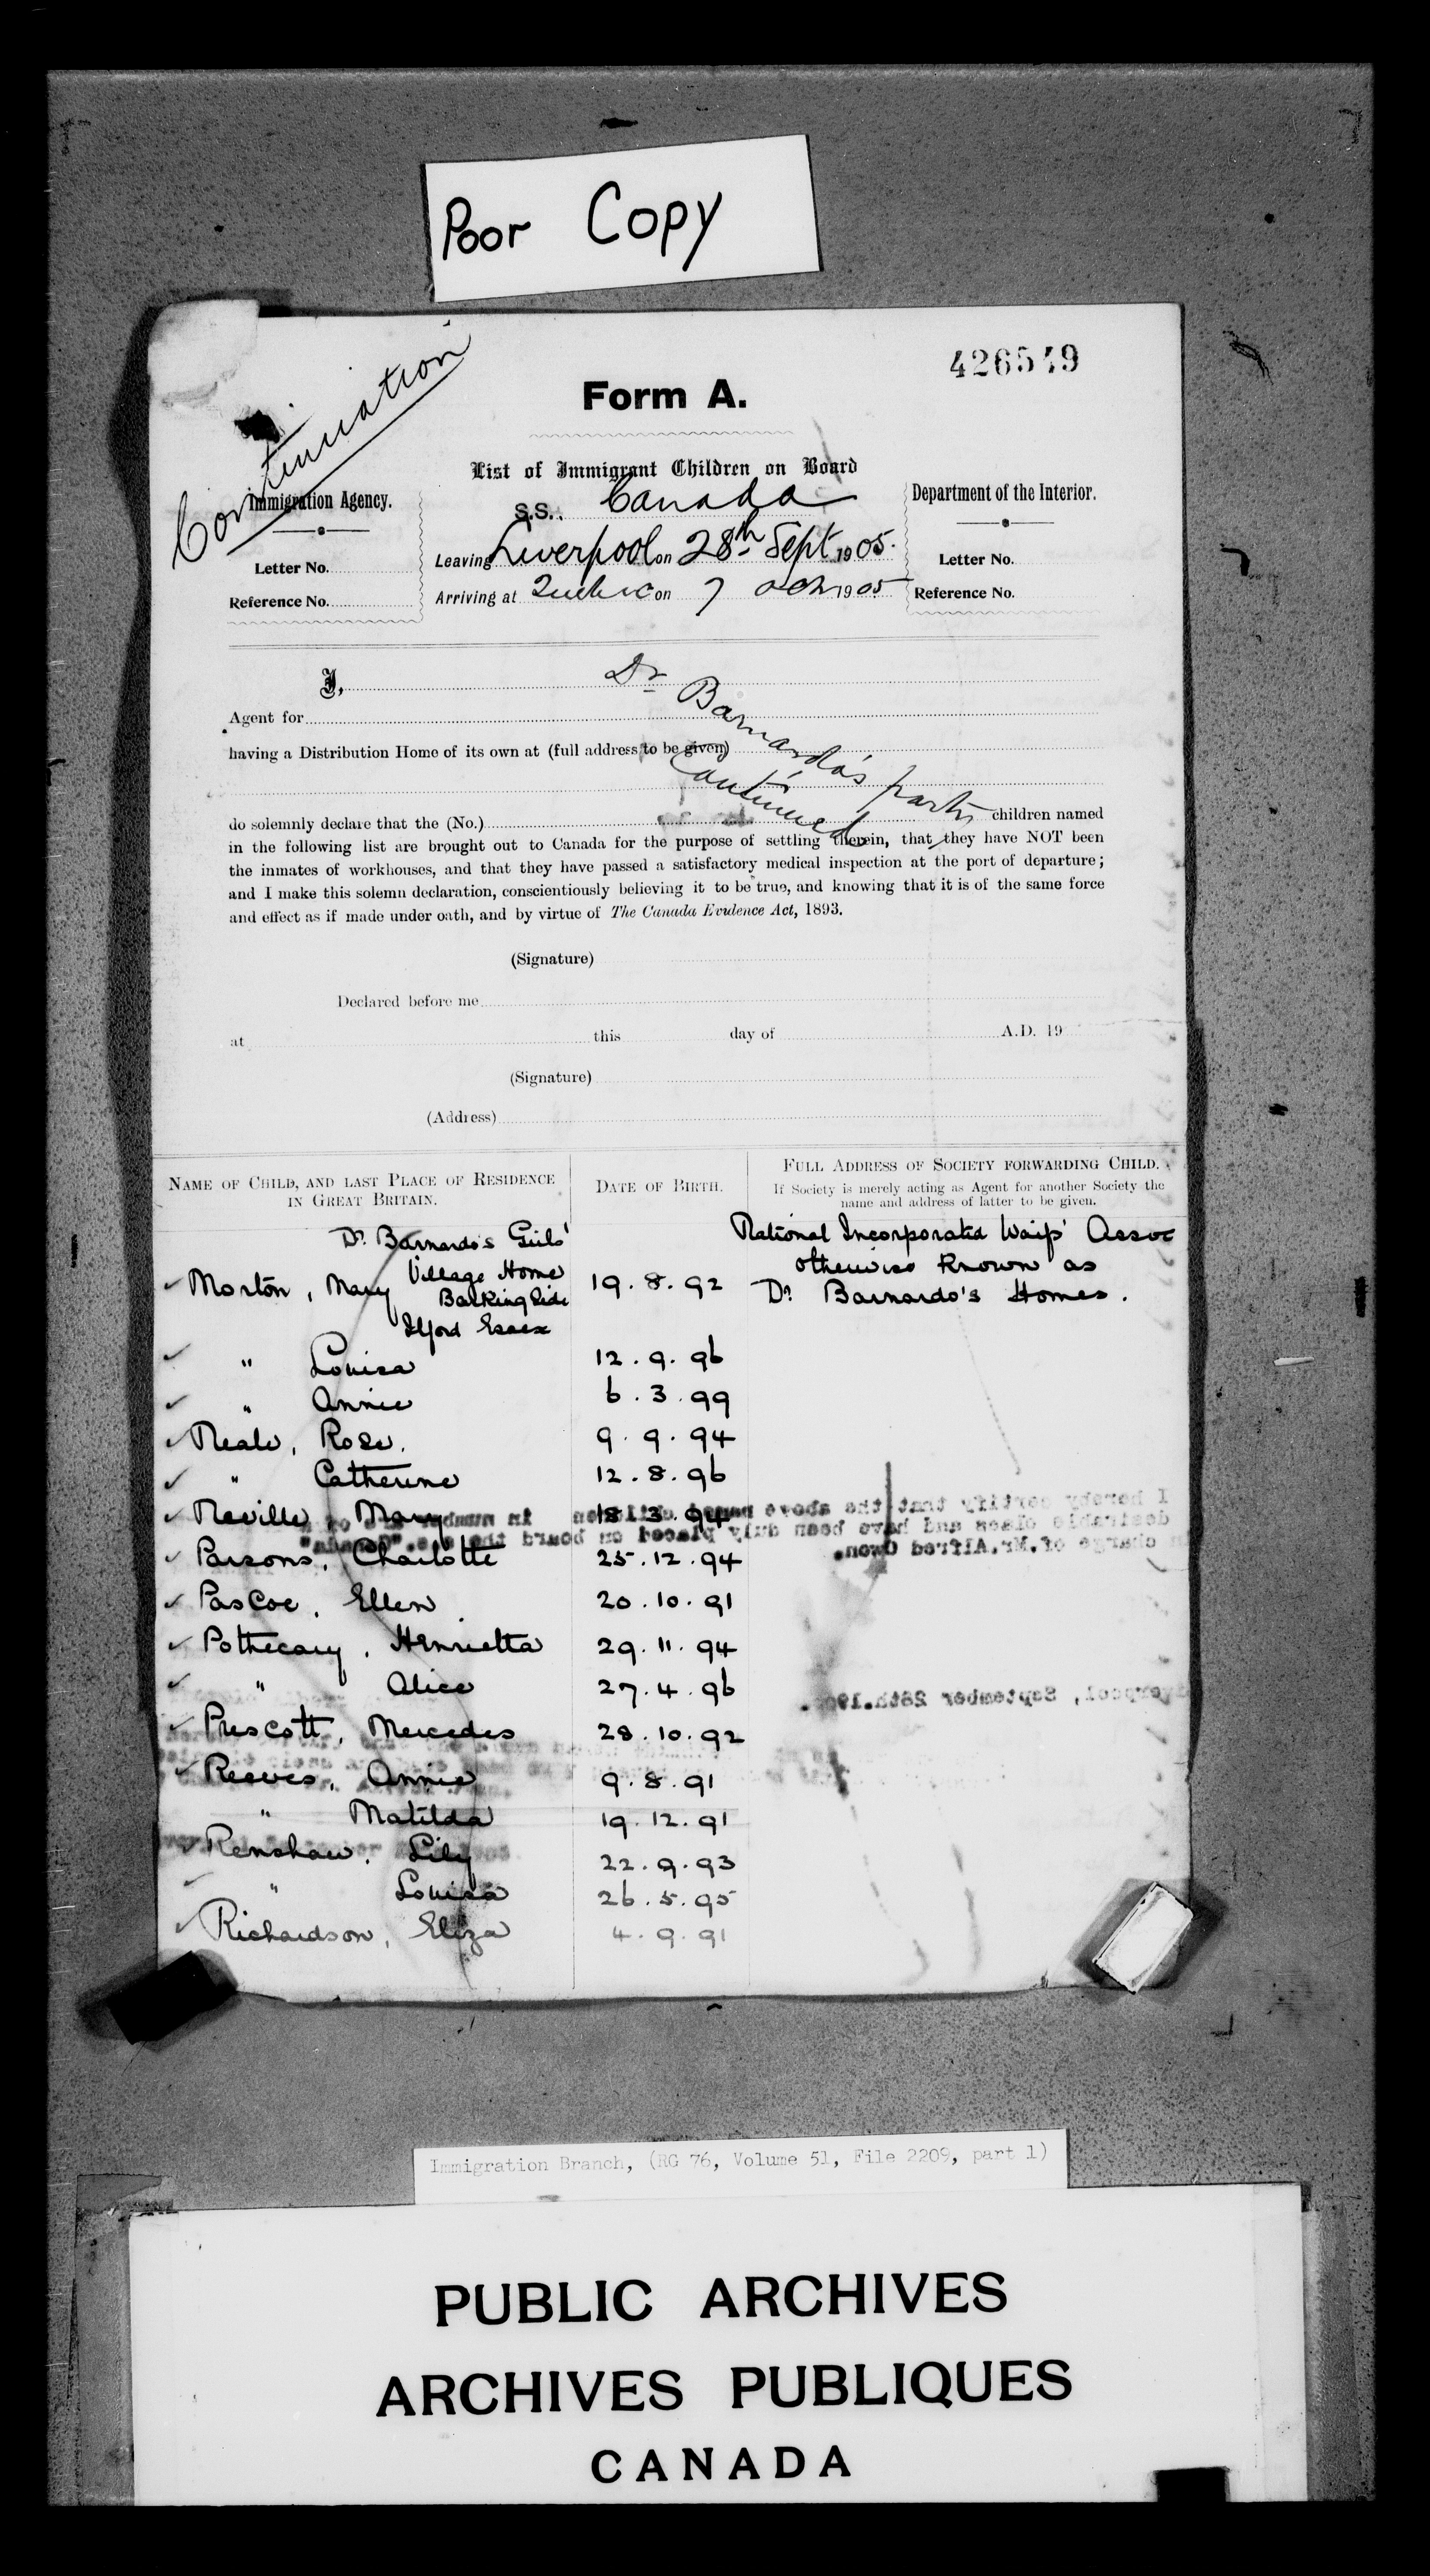 Poor Copy
426549
Continuation
Form A.
List of Immigrant Children on Board
Immigration Agency.
S.S. Canada
Department of the Interior.
Letter No.
Leaving Liverpool on 28th Sept 1905.
Letter No.
Reference No.
Arriving at Quebec on 7 Oct 1905
Reference No.
I, Dr Barnardo's party
continued
Agent for
having a Distribution Home of its own at (full address to be given)
do solemnly declare that the (No.) children named
in the following list are brought out to Canada for the purpose of settling therein, that they have NOT been
the inmates of workhouses, and that they have passed a satisfactory medical inspection at the port of departure;
and I make this solemn declaration, conscientiously believing it to be true, and knowing that it is of the same force
and effect as if made under oath, and by virtue of The Canada Evidence Act, 1893.
(Signature)
Declared before me
at this day of A.D. 19
(Signature)
(Address)
NAME OF CHILD, AND LAST PLACE OF RESIDENCE
IN GREAT BRITAIN.
DATE OF BIRTH.
FULL ADDRESS OF SOCIETY FORWARDING CHILD.
If Society is merely acting as Agent for another Society the
name and address of latter to be given.
Dr. Barnardo's Girls'
Village Home
Barkingside
Ilford Essex
National Incorporated Waifs' Assoc
otherwise known as
Dr. Barnardo's Homes.
Morton, Mary 19.8.92
" Louisa 12.9.96
" Annie 6.3.99
Neale, Rose. 9.9.94
" Catherine 12.8.96
Neville, Mary 18.3.94
Parsons, Charlotte 25.12.94
Pascoe, Ellen 20.10.91
Pothecary, Henrietta 29.11.94
" Alice 27.4.96
Prescott, Mercedes 28.10.92
Reeves, Annie 9.8.91
" Matilda 19.12.91
Renshaw, Lily 22.9.93
" Louisa 26.5.95
Richardson, Eliza 4.9.91
I hereby certify that the above named children in number
desirable class and have been duly placed on board the s.s. "Canada"
in charge of Mr. Alfred Owen.
Liverpool, September 28th.
Immigration Branch, (RG 76, Volume 51, File 2209, part 1)
PUBLIC ARCHIVES
ARCHIVES PUBLIQUES
CANADA